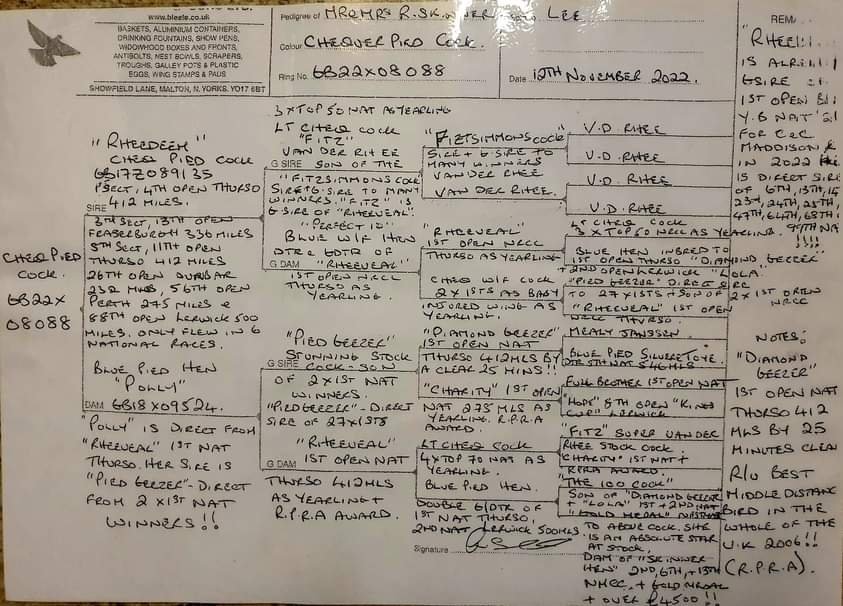 www.bleele.co.uk
BASKETS, ALUMINIUM CONTAINERS,
DRINKING FOUNTAINS, SHOW PENS,
WIDOWHOOD BOXES AND FRONTS,
ANTIBOLTS, NEST BOWLS, SCRAPERS,
TROUGHS, GALLEY POTS & PLASTIC
EGGS, WING STAMPS & PADS
SHOWFIELD LANE, MALTON, N. YORKS. YO17 6BT
Pedigree of MR & MRS R. SKINNER LEE
Colour CHEQUER PIED COCK.
Ring No. GB22X08088
Date 12TH NOVEMBER 2022
CHEQ PIED
COCK.
GB22X
08088
"RHEEDEEM"
CHEQ PIED COCK
GB17Z089135
1ST SECT, 4TH OPEN THURSO
412 MILES.
SIRE
3RD SECT, 13TH OPEN
FRASERBURGH 336 MILES
5TH SECT, 11TH OPEN
THURSO 412 MILES
26TH OPEN DUNBAR
232 MILES, 56TH OPEN
PERTH 275 MILES &
88TH OPEN LERWICK 500
MILES. ONLY FLEW IN 6
NATIONAL RACES.
BLUE PIED HEN
"POLLY"
DAM GB18X09524.
"POLLY" IS DIRECT FROM
"RHEEVEAL" 1ST NAT
THURSO. HER SIRE IS
"PIED GEEZER" - DIRECT
FROM 2 X 1ST NAT
WINNERS!!
3 X TOP 50 NAT AS YEARLING
LT CHEQ COCK
"FITZ"
VAN DER RHEE
G SIRE SON OF THE
"FITZSIMMONS COCK
SIRE + G.SIRE TO MANY
WINNERS. "FITZ" IS
G.SIRE OF "RHEEVEAL".
"PERFECT 10"
BLUE W/F HEN
DTR & GDTR OF
G DAM "RHEEVEAL"
1ST OPEN NRCC
THURSO AS
YEARLING.
"PIED GEEZER"
STUNNING STOCK
G SIRE COCK - SON
OF 2 X 1ST NAT
WINNERS.
"PIED GEEZER" - DIRECT
SIRE OF 27 X 1STS
"RHEEVEAL"
G DAM 1ST OPEN NAT
THURSO 412 MLS
AS YEARLING +
R.P.R.A AWARD.
"FITZSIMMONS COCK"
SIRE + G.SIRE TO
MANY WINNERS
VAN DER RHEE
VAN DER RHEE.
"RHEEVEAL"
1ST OPEN NRCC
THURSO AS YEARLING
CHEQ W/F COCK
2 X 1STS AS BABY
INJURED WING AS
YEARLING.
"DIAMOND GEEZER"
1ST OPEN NAT
THURSO 412 MLS BY
A CLEAR 25 MINS!!
"CHARITY" 1ST OPEN
NAT 275 MLS AS
YEARLING. R.P.R.A
AWARD.
LT CHEQ COCK
4 X TOP 70 NAT AS
YEARLING.
BLUE PIED HEN.
DOUBLE G/DTR OF
1ST NAT THURSO,
2ND NAT LERWICK 500 MLS
Signature
V.D. RHEE
V.D. RHEE
V.D. RHEE
V.D. RHEE
LT CHEQ COCK
3 X TOP 50 NRCC AS YEARLING.
BLUE HEN INBRED TO
1ST OPEN THURSO "DIAMOND GEEZER"
+ 2ND OPEN LERWICK "LOLA"
"PIED GEEZER" DIRECT SIRE
TO 27 X 1STS + SON OF 2 X 1ST OPEN NRCC
"RHEEVEAL" 1ST OPEN
NRCC THURSO
MEALY JANSSEN.
BLUE PIED
DTR 5TH NAT 546 MLS
FULL BROTHER 1ST OPEN NAT
"HOPE" 8TH OPEN "KINGS
CUP" LERWICK
"FITZ" SUPER VAN DER
RHEE STOCK COCK.
CHARITY" 1ST NAT +
RPRA AWARD.
"THE 100 COCK"
SON OF "DIAMOND GEEZER
+ "LOLA" 1ST + 2ND NAT
"GOLD MEDAL"
TO ABOVE COCK. SHE
IS AN ABSOLUTE STAR
AT STOCK.
DAM OF "SKINNER
HEN" 2ND, 6TH, + 13TH
NHCC. + GOLD MEDAL
+ OVER £4500!!
"RHEE
IS ALRE
GSIRE
1ST OPEN
Y.B NAT '21
FOR C & C
MADDISON &
IN 2022
IS DIRECT SIRE
OF 6TH, 13TH,
23RD, 24TH, 25TH,
47TH, 64TH, 68TH
99TH NA
!!!!
NOTES:
"DIAMOND
GEEZER"
1ST OPEN NAT
THURSO 412
MLS BY 25
MINUTES CLEA
R/U BEST
MIDDLE DISTANC
BIRD IN THE
WHOLE OF THE
U.K 2006!!
(R.P.R.A).